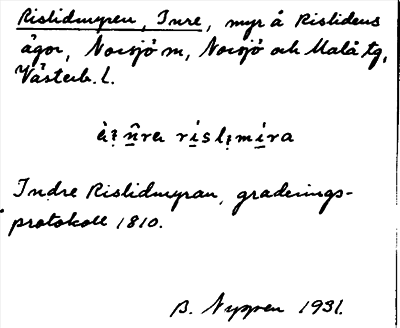 Rislidmyren, Inre, myr å Rislidens
ägor, Norsjö m, Norsjö och Malå tg,
Västerb. l.
rislmira
Indre Rislidmyran, graderings-
protokoll 1810.
B. Nyppen 1931.